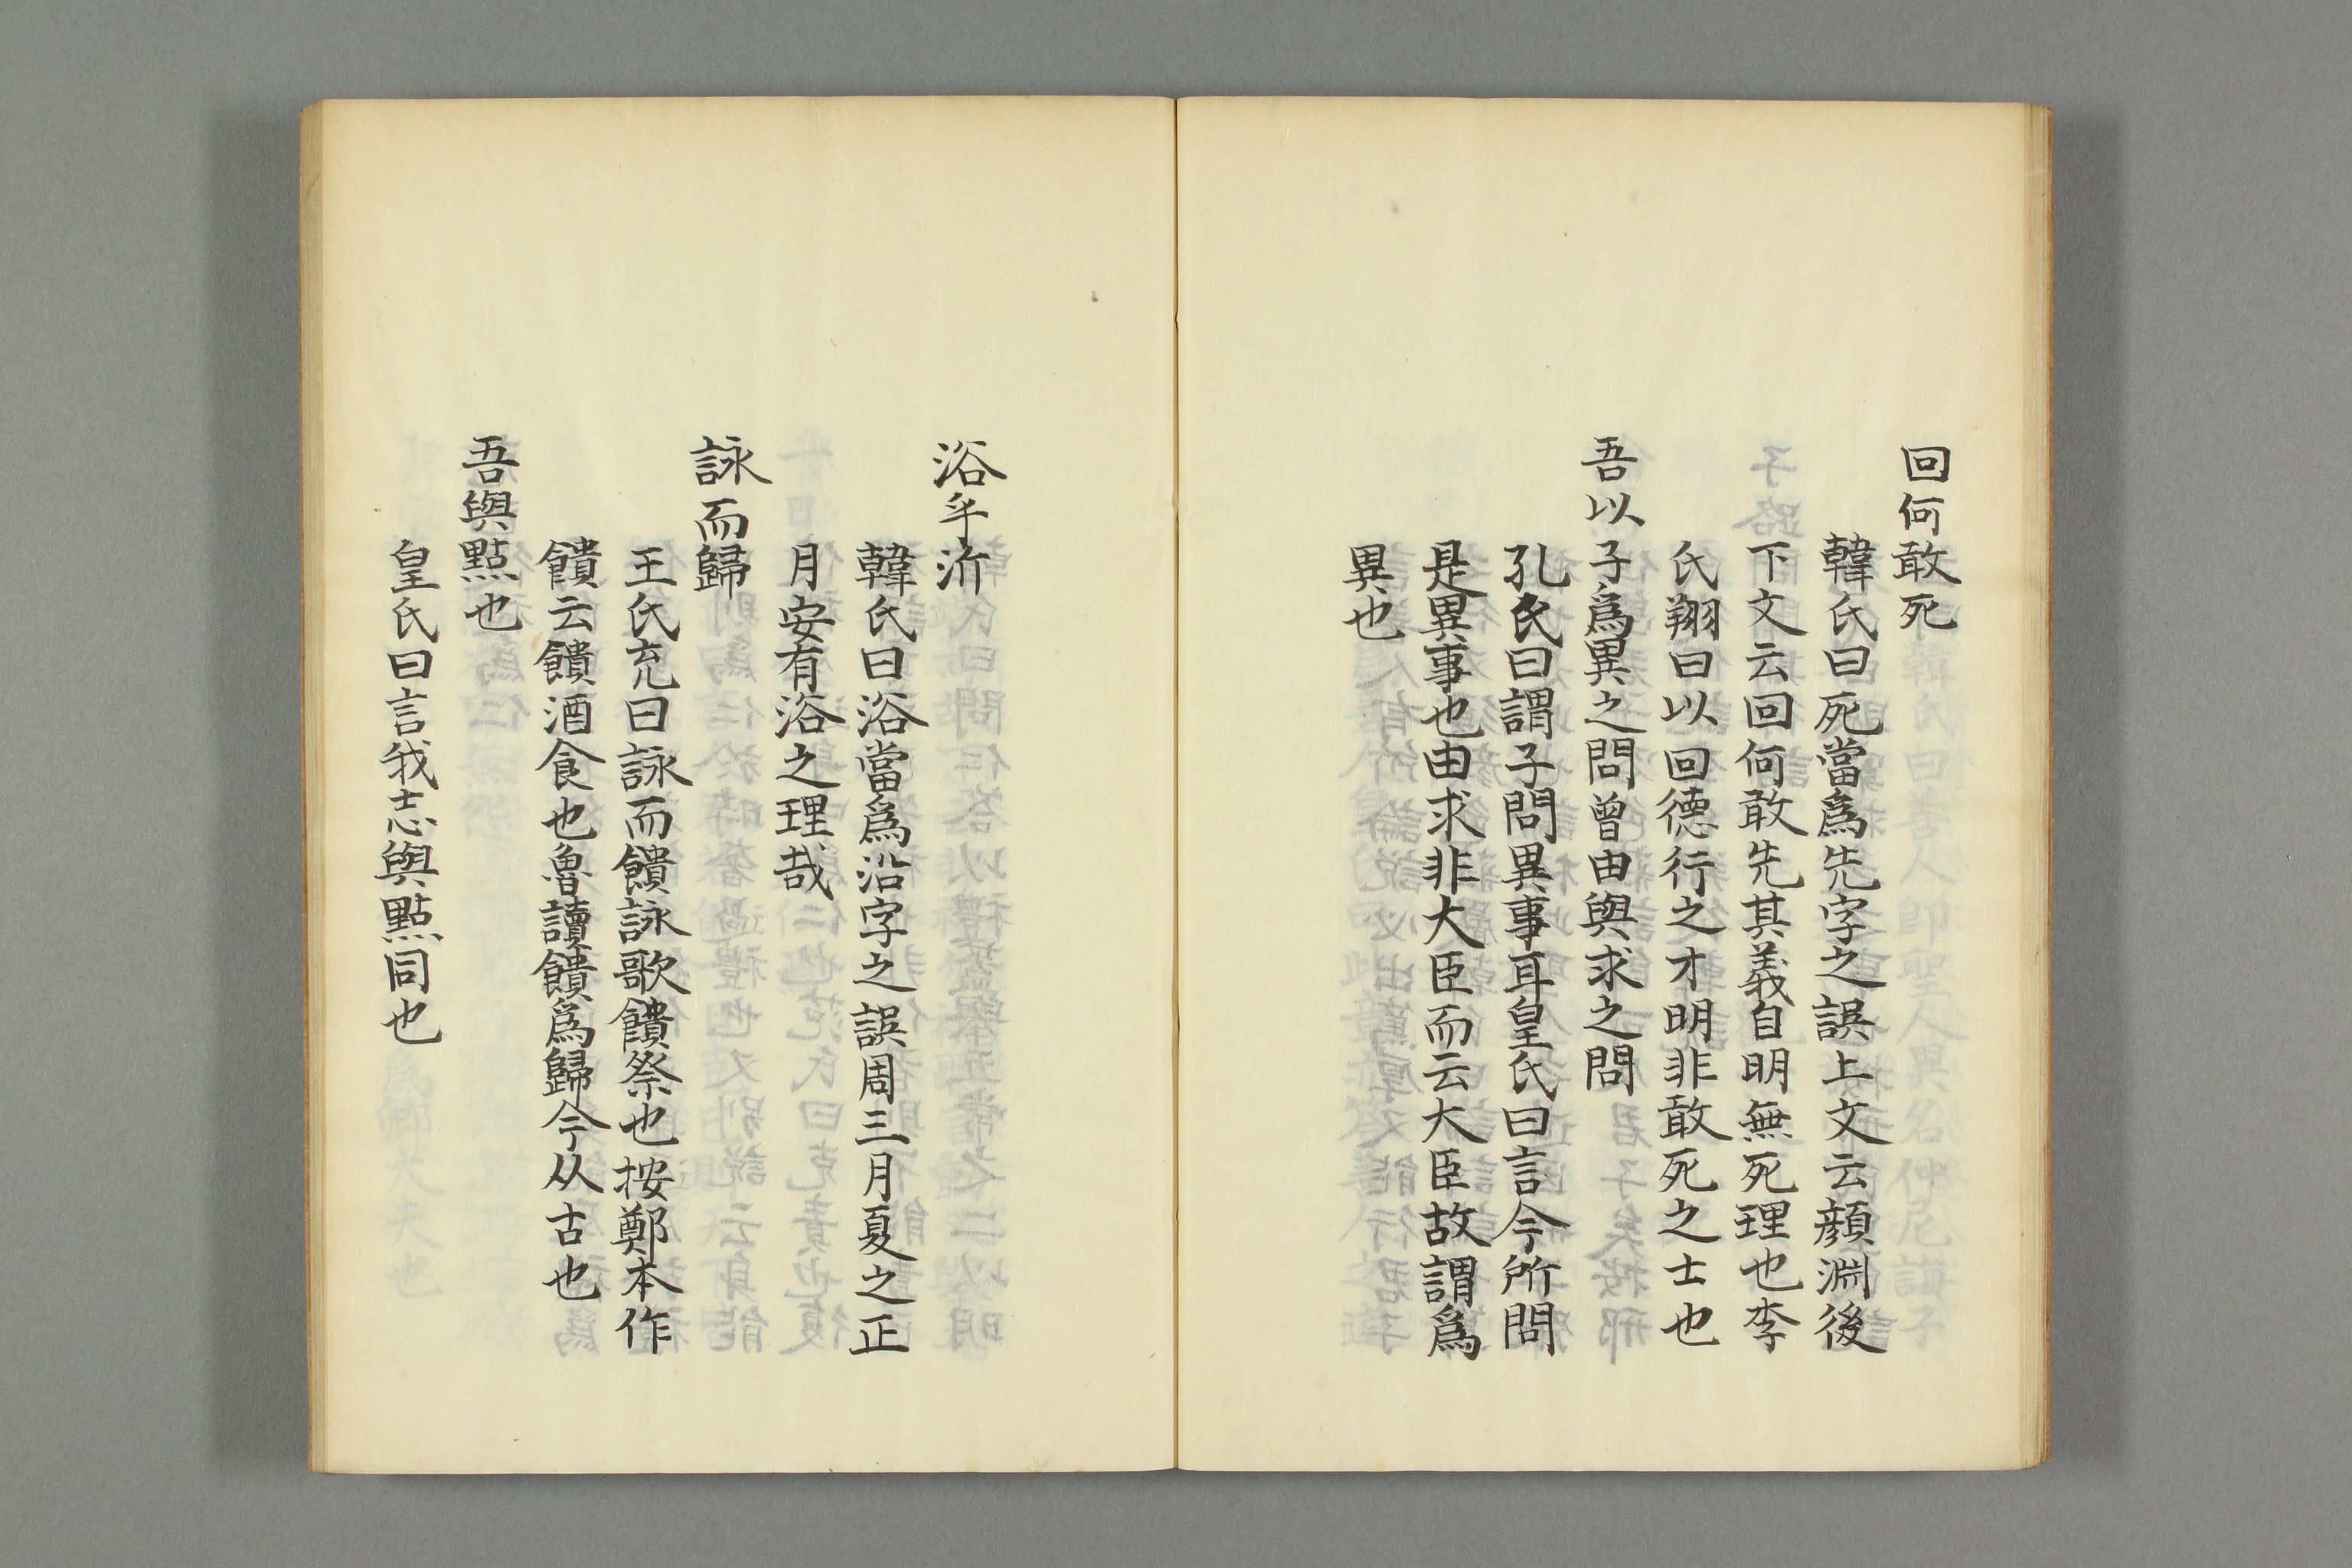 回何敢死
韓氏曰死當爲先字之誤上文云顔淵後
下文云回何敢先其義自明無死理也李
氏翔曰以回德行之才明非敢死之士也
吾以子爲異之問曾由與求之問
孔氏曰謂子問異事耳皇氏曰言今所問
是異事也由求非大臣而云大臣故謂爲
異也
浴乎沂
韓氏曰浴當爲沿字之誤周三月夏之正
月安有浴之理哉
詠而歸
王氏充曰詠而饋詠歌饋祭也按鄭本作
饋云饋酒食也魯讀饋爲歸今从古也
吾與點也
皇氏曰言我志與點同也